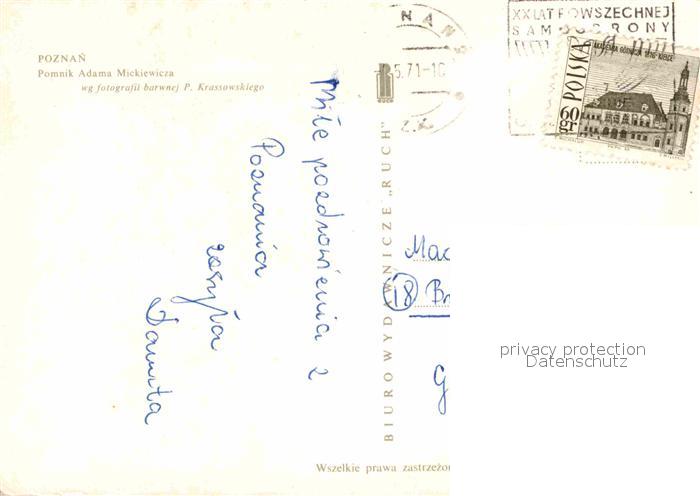 POZNAŃ
Pomnik Adama Mickiewicza
wg fotografii barwnej P. Krassowskiego
Miłe pozdrowienia z
Poznania
zasyła
Danuta
BIURO WYDAWNICZE „RUCH"
RUCH
5.71-1
XX LAT POWSZECHNEJ
SAMOOBRONY
POLSKA
AKADEMIA GÓRNICZA 1816 KIELCE
60
gr
Mac
18 Br
G
privacy protection
Datenschutz
Wszelkie prawa zastrzeżon